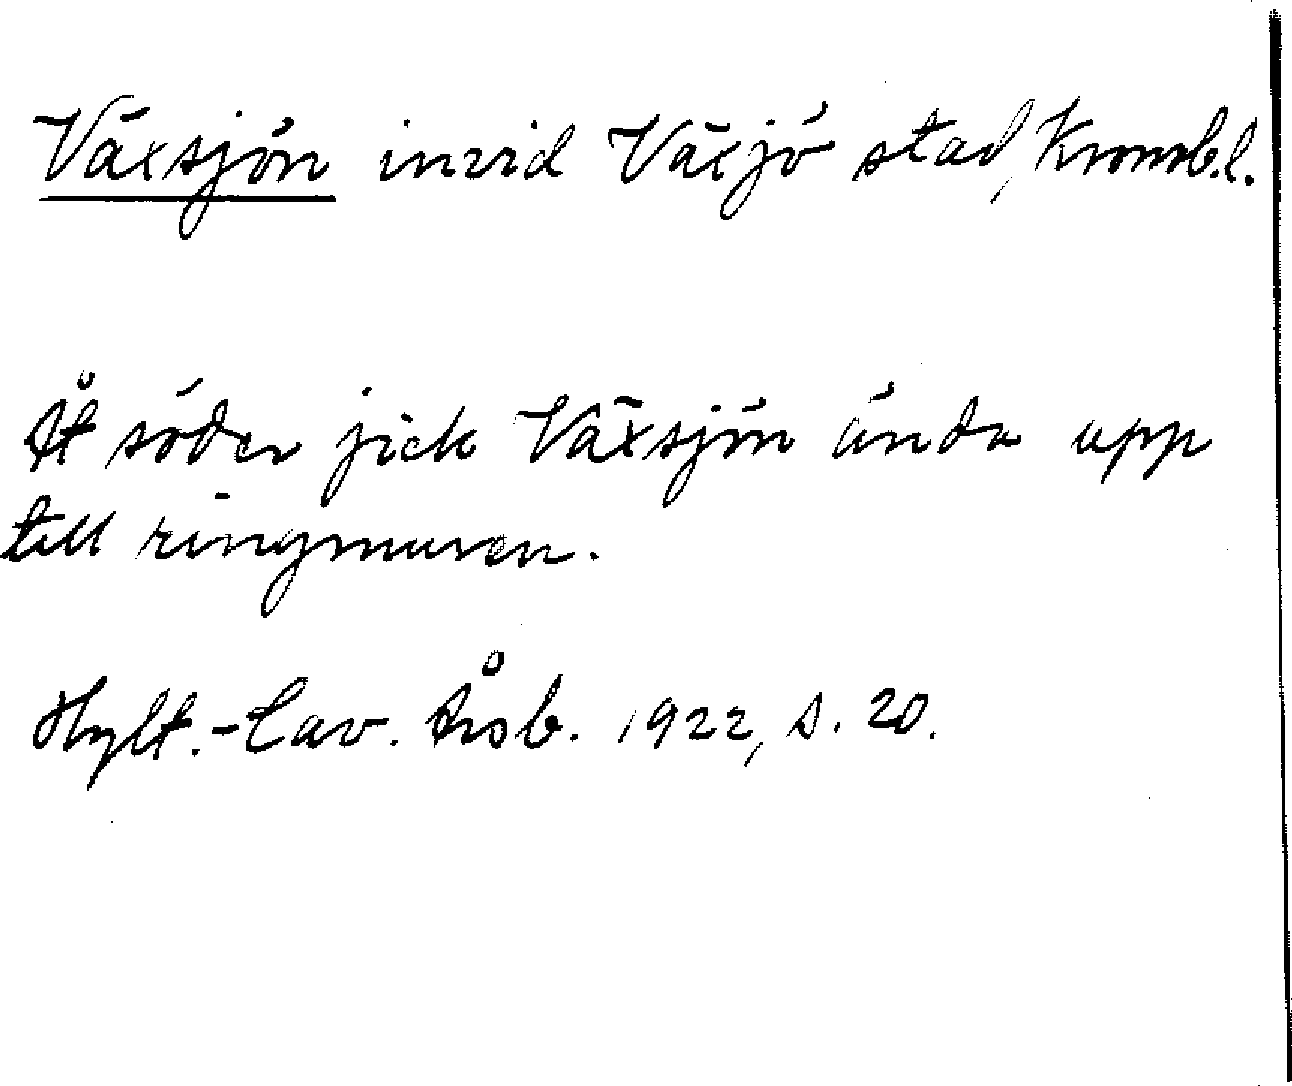 Växsjön invid Växjö stad, Kronob.l.
Åt söder jick Växsjön ända upp
till ringmuren.
Hylt.-Cav. Årsb. 1922, s. 20.